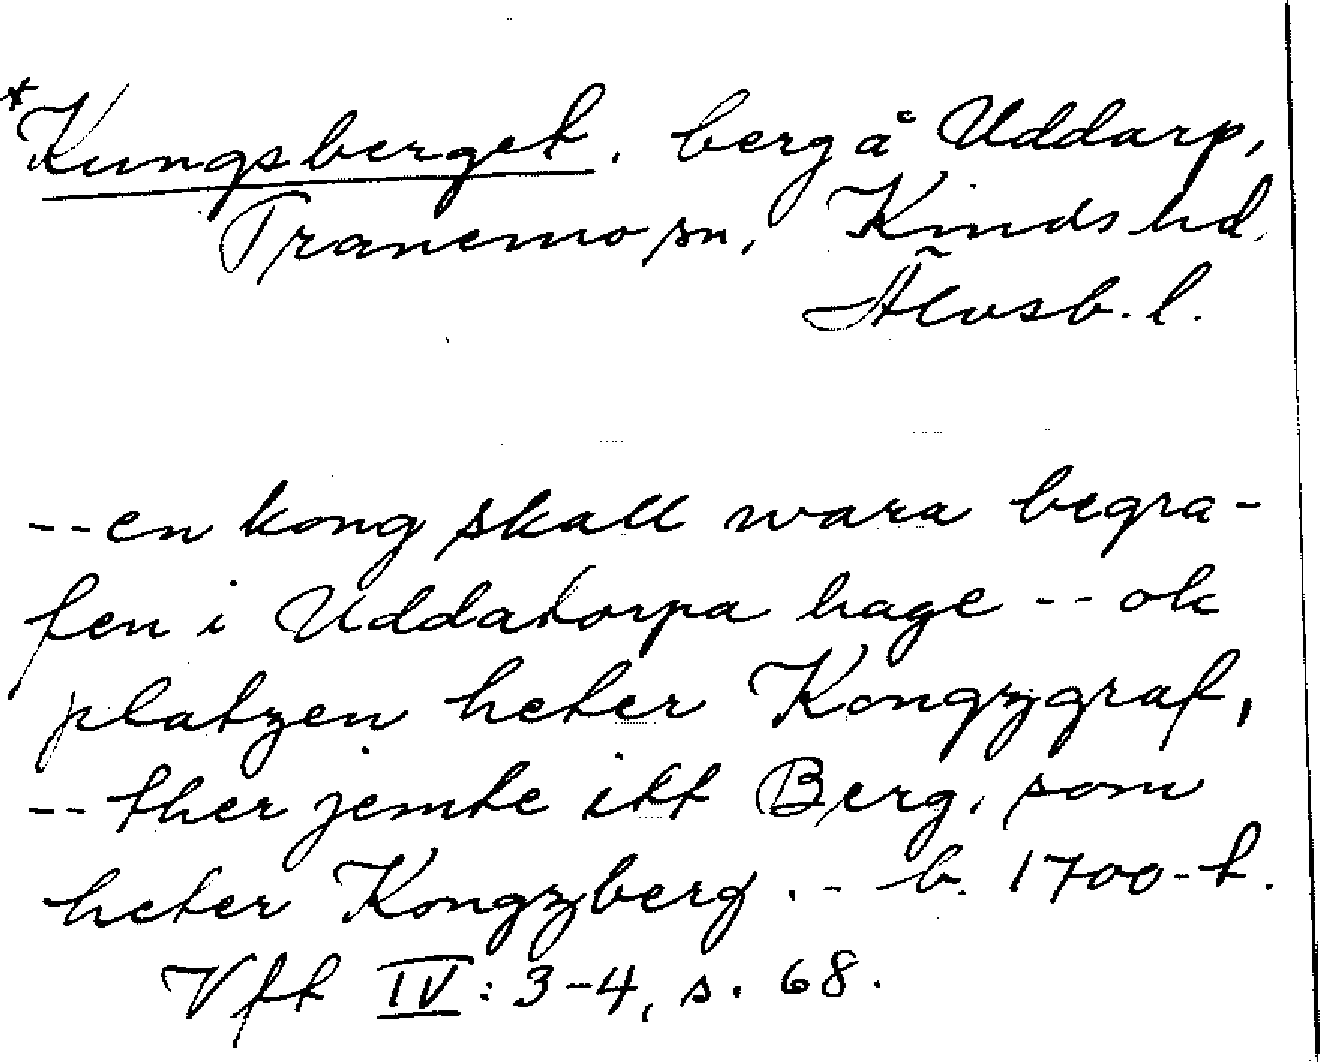 *Kungsberget. berg å Uddarp,
Tranemo sn, Kinds hd.
Älvsb. l.
-- en kong skall wara begra-
fen i Uddatorpa hage -- ok
platzen heter Kongzgraf,
-- ther jemte itt Berg, som
heter Kongzberg. - b. 1700-t.
Vft IV: 3-4, s. 68.